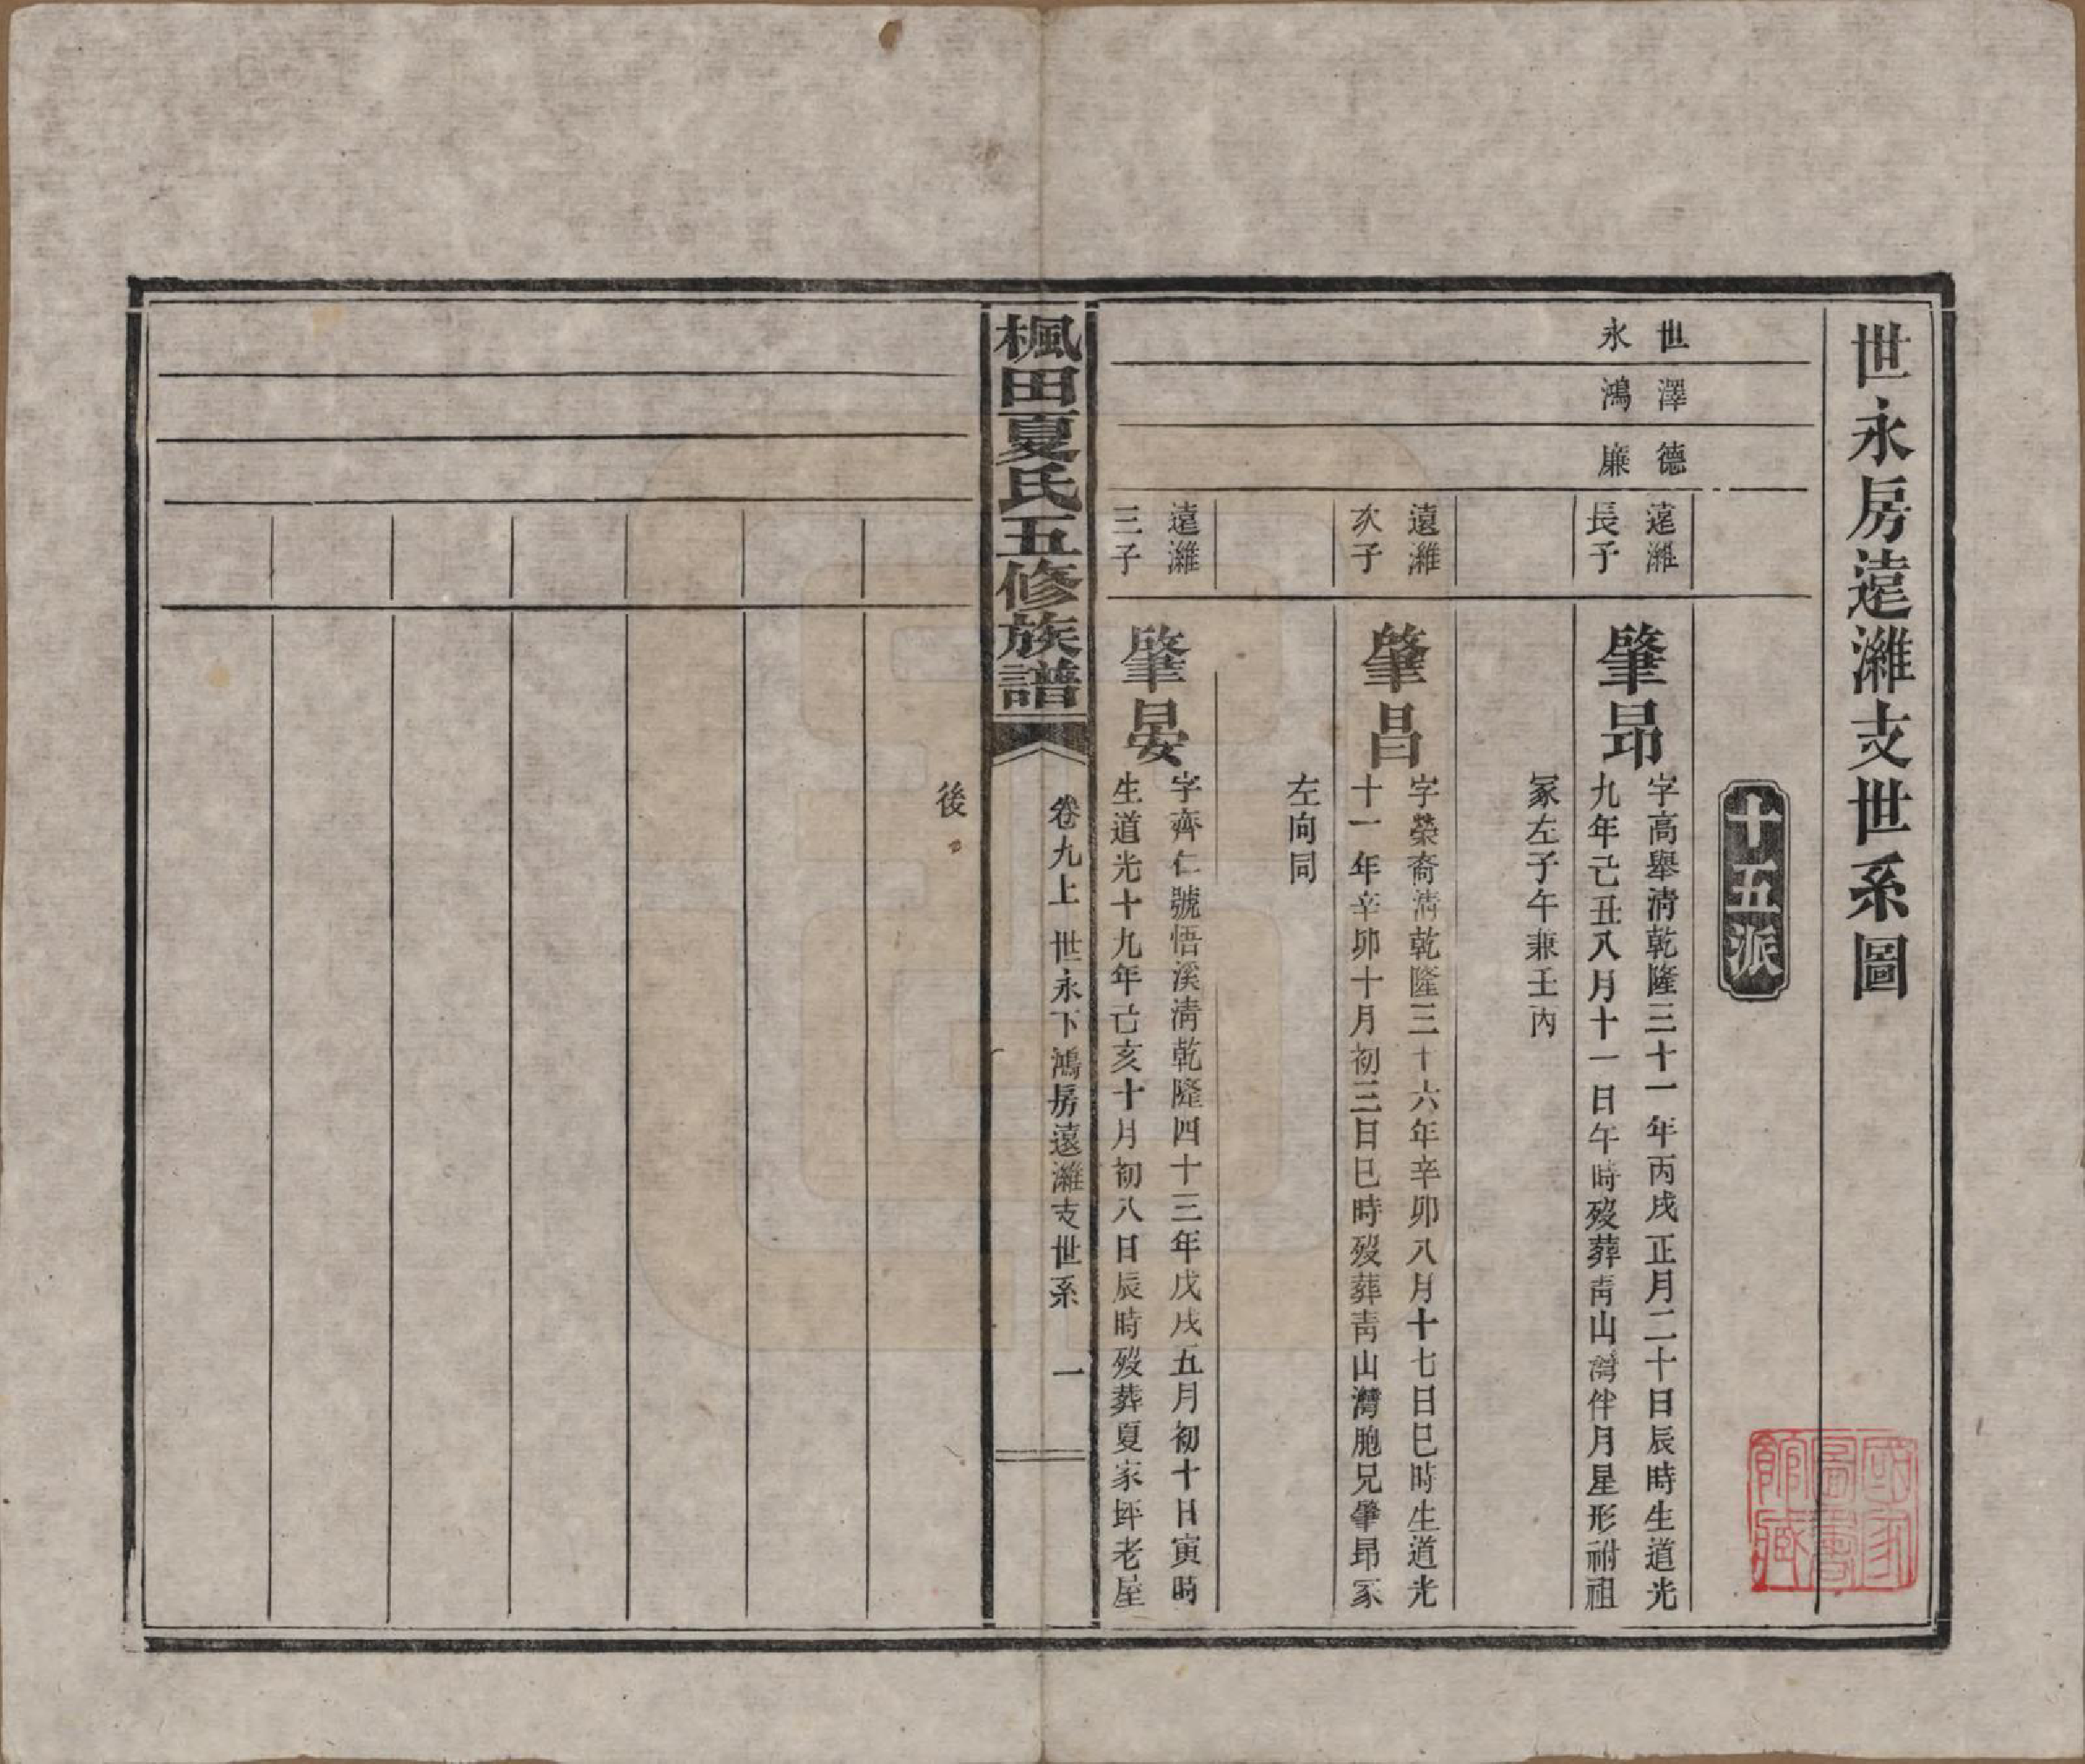 世永房遠濰支世系圖
十五派
世 澤 德
永 鴻 廉
遠濰
長子
肇昂
字高舉淸乾隆三十一年丙戌正月二十日辰時生道光
九年己丑八月十一日午時歿葬靑山灣伴月星形祔祖
冢左子午兼壬丙
遠濰
次子
肇昌
字榮裔淸乾隆三十六年辛卯八月十七日巳時生道光
十一年辛卯十月初三日巳時歿葬靑山灣胞兄肇昂冢
左向同
遠濰
三子
肇晏
字齊仁號悟溪淸乾隆四十三年戊戌五月初十日寅時
生道光十九年己亥十月初八日辰時歿葬夏家坪老屋
楓田夏氏五修族譜
卷九上 世永下鴻房遠濰支世系 一
後
國家
圖書
館藏